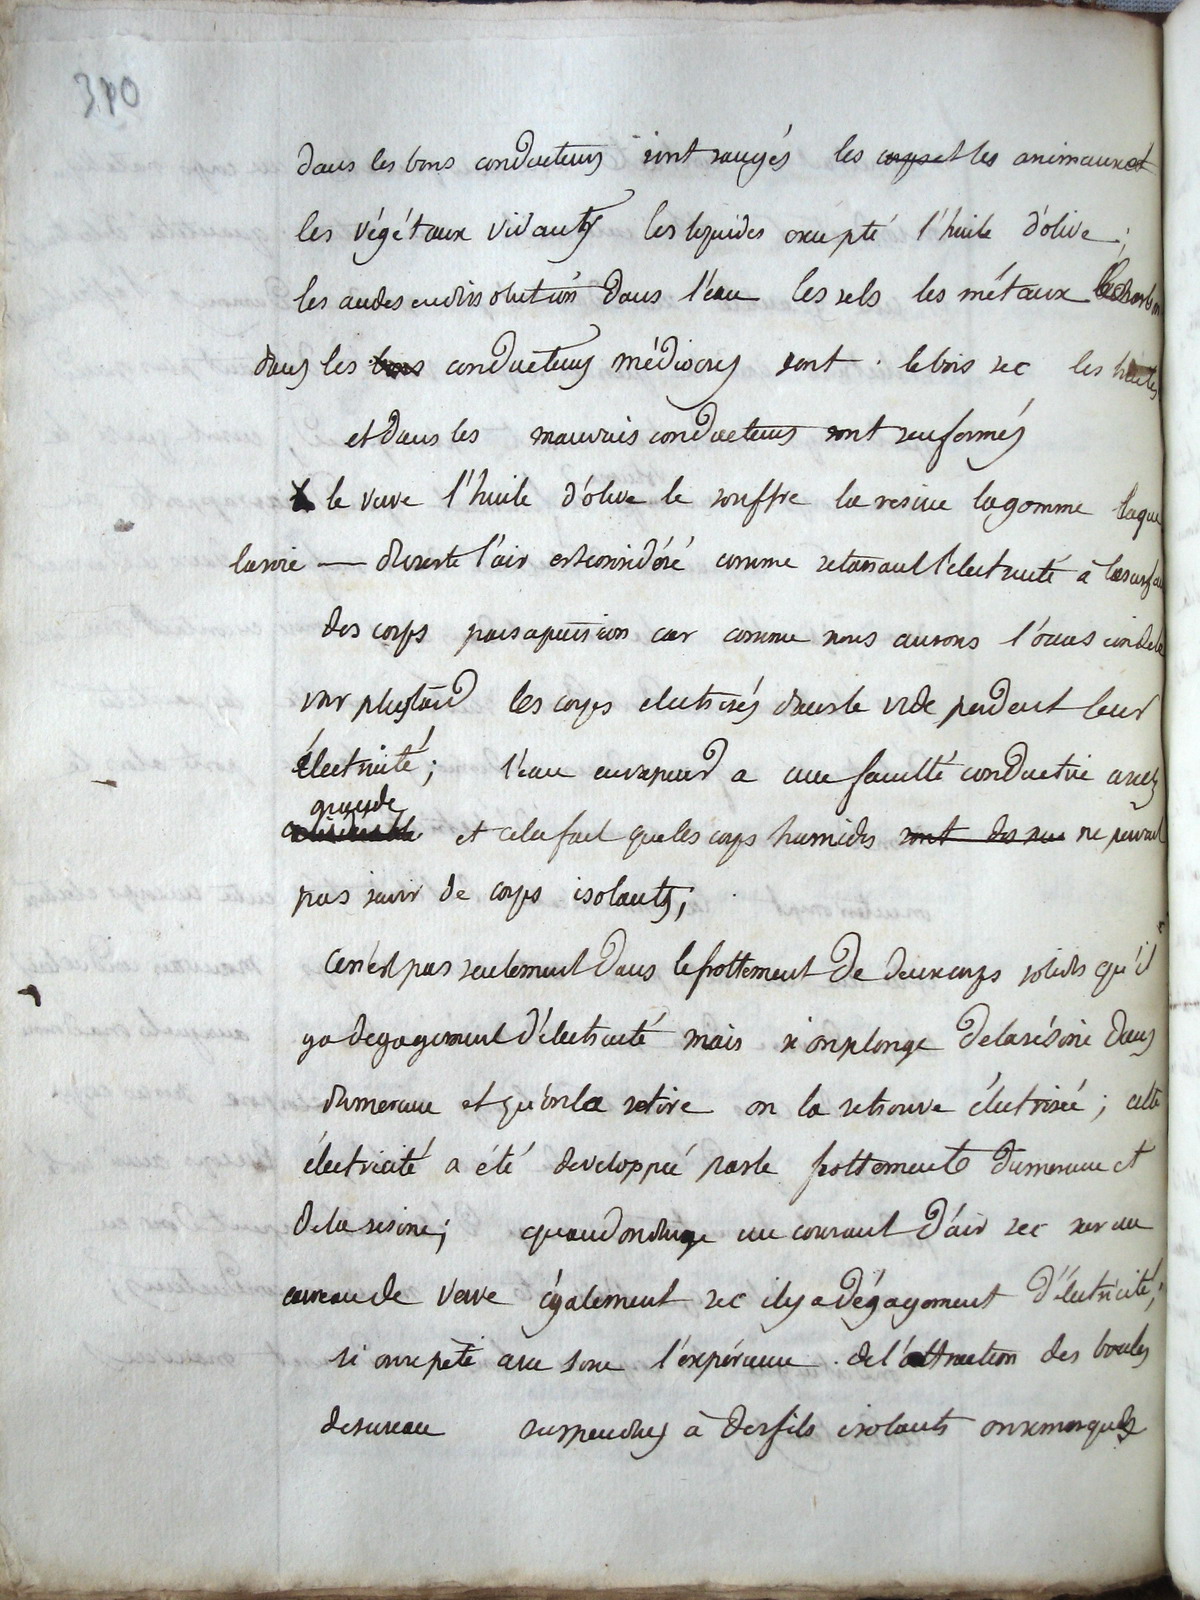 310
dans les bons conducteurs sont rangés les corps et les animaux et
les végétaux vivants les liquides excepté l'huile d'olive;
les acides en dissolution dans l'eau les sels les métaux le charbon
dans les bons conducteurs médiocres sont le bois sec les huiles
et dans les mauvais conducteurs sont renfermés
le verre l'huile d'olive le souffre la resine la gomme laque
la soie — du reste l'air est considéré comme retenant l'électricité à la surface
des corps par sa pression car comme nous aurons l'occasion de le
voir plus tard les corps electrisés dans le vide perdent leur
électricité; l'eau en vapeur a une faculté conductrie assez
grande
considerable et cela fait que les corps humides sont des ne peuvent
pas servir de corps isolants;
ce n'est pas seulement dans le frottement de deux corps solides qu'il
ya degagement d'électricité mais si on plonge de la résine dans
du mercure et qu'on la retire on la retrouve électrisée; cette
électricité a été developpée par le frottement du mercure et
de la resine; quand on dirige un courant d'air sec sur un
carreau de verre également sec il y a dégagement d'électricité;
si on repète avec soin l'expérience de l'attraction des boules
de sureau suspendues à des fils isolants on remarque